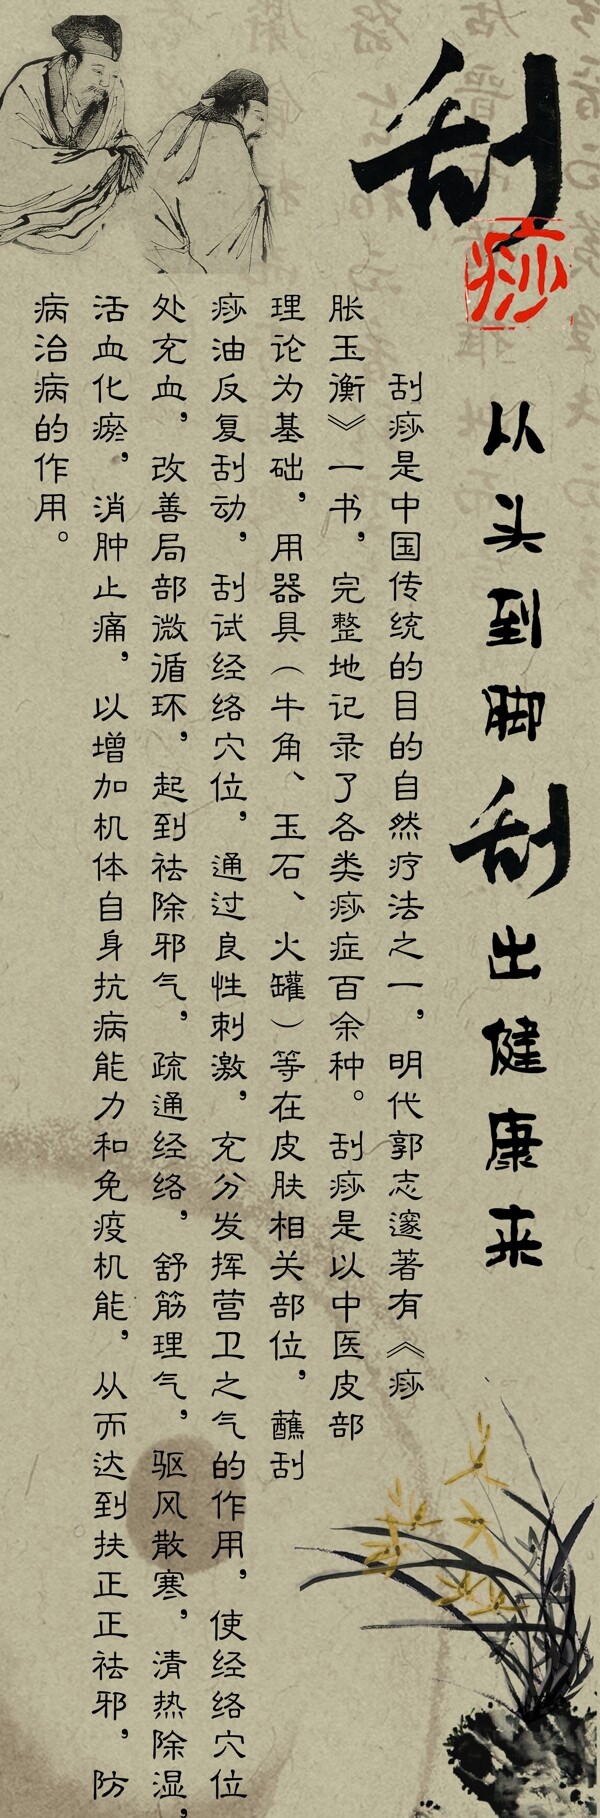 刮
痧
以头到脚刮出健康来
刮痧是中国传统的目的自然疗法之一，明代郭志邃著有《痧
胀玉衡》一书，完整地记录了各类痧症百余种。刮痧是以中医皮部
理论为基础，用器具（牛角、玉石、火罐）等在皮肤相关部位，蘸刮
痧油反复刮动，刮试经络穴位，通过良性刺激，充分发挥营卫之气的作用，使经络穴位
处充血，改善局部微循环，起到祛除邪气，疏通经络，舒筋理气，驱风散寒，清热除湿，
活血化瘀，消肿止痛，以增加机体自身抗病能力和免疫机能，从而达到扶正正祛邪，防
病治病的作用。